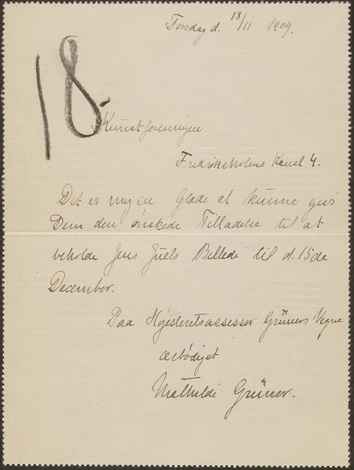 Torsdag d. 18/11 1909.
18.
Kunstforeningen
Frederiksholms Kanal 4.
Det er mig en Glæde at kunne give
Dem den ønskede Tilladelse til at
beholde Jens Juels Billede til d. 15de
December.
Paa Højesteretsassessor Grüners Vegne
ærbødigst
Mathilde Grüner.